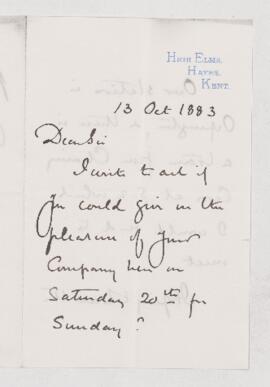 HIGH ELMS,
HAYES,
KENT.
13 Oct 1883
Dear Sir
I write to ask if
you could give us the
pleasure of your
Company here on
Saturday 20th for
Sunday?